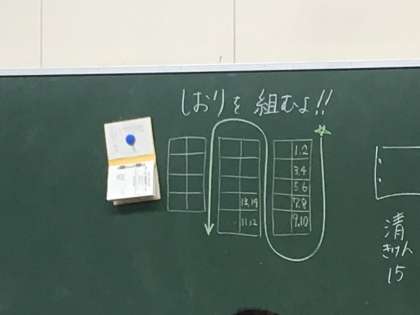 しおりを組むよ!!
1,2
3,4
5,6
7,8
9,10
13,14
11,12
清
15